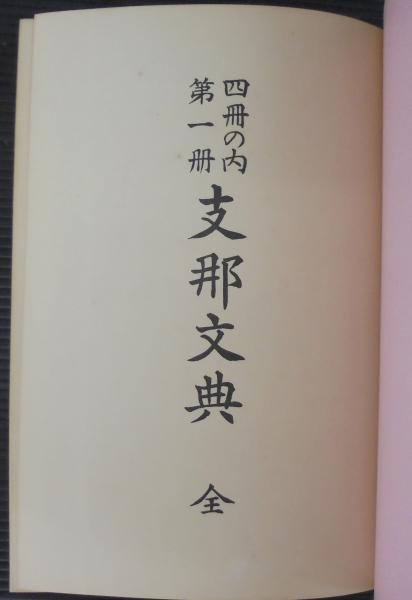 四冊の内
第一册
支那文典
全